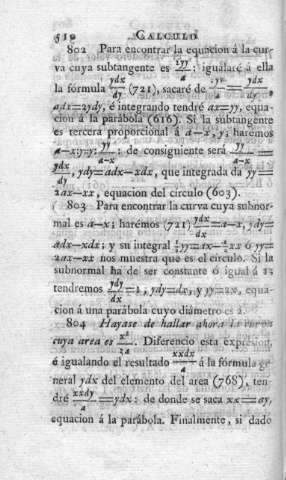 510 CALCULO
802 Para encontrar la equacion á la cur-
va cuya subtangente es 2yy/a: igualaré á ella
la fórmula ydx/dy (721), sacaré de 2yy/a = ydx/dy,
adx=2ydy, é integrando tendré ax=yy, equa-
cion á la parábola (616). Si la subtangente
es tercera proporcional á a-x, y; harémos
a-x:y=y: yy/a-x; de consiguiente será yy/a-x =
ydx/dy, ydy=adx-xdx, que integrada da yy=
2ax-xx, equacion del circulo (603).
803 Para encontrar la curva cuya subnor-
mal es a-x; harémos (721) ydx/dx=a-x, ydy=
adx-xdx; y su integral ½yy=ax-½xx ó yy=
2ax-xx nos muestra que es el circulo. Si la
subnormal ha de ser constante ó igual á
tendremos ydy/dx=1, ydy=dx, y yy=2x, equa-
cion á una parábola cuyo diámetro es
804 Hayase de hallar ahora la curva
cuya area es x³/3a. Diferencio esta expresion,
é igualando el resultado xxdx/a á la fórmula ge-
neral ydx del elemento del area (768), ten-
dré xxdy/a=ydx: de donde se saca xx=ay,
equacion á la parábola. Finalmente, si dado